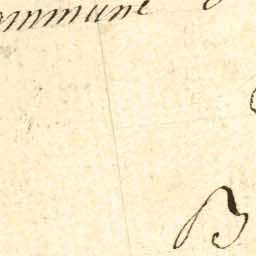 ommune
B